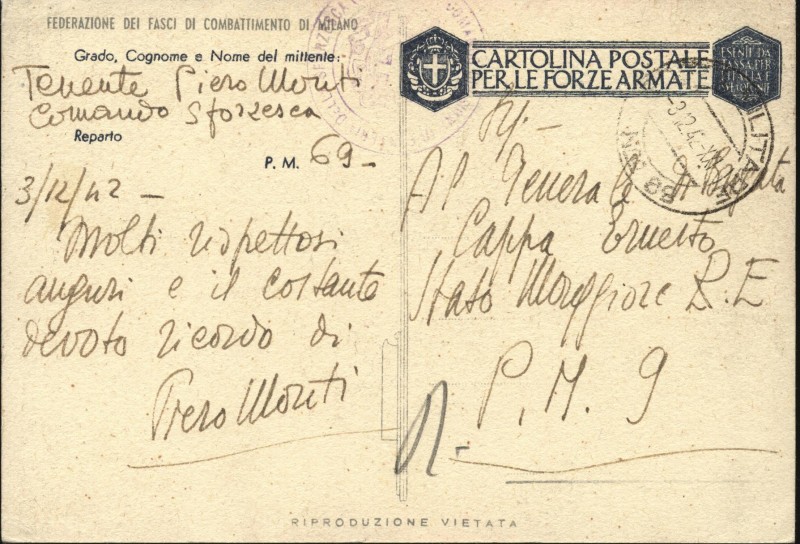 FEDERAZIONE DEI FASCI DI COMBATTIMENTO DI MILANO
Grado, Cognome e Nome del mittente:
Tenente Piero Monti
Comando Sforzesca
Reparto
P. M. 69-
3/12/42-
Molti rispettosi
auguri e il costante
devoto ricordo di
Piero Monti
CARTOLINA POSTALE
PER LE FORZE ARMATE
ESENTE DA
TASSA PER
L'ITALIA E
-3.12.42
Al Generale
Cappa Ernesto
Stato Maggiore R.E
P.M. 9
RIPRODUZIONE VIETATA